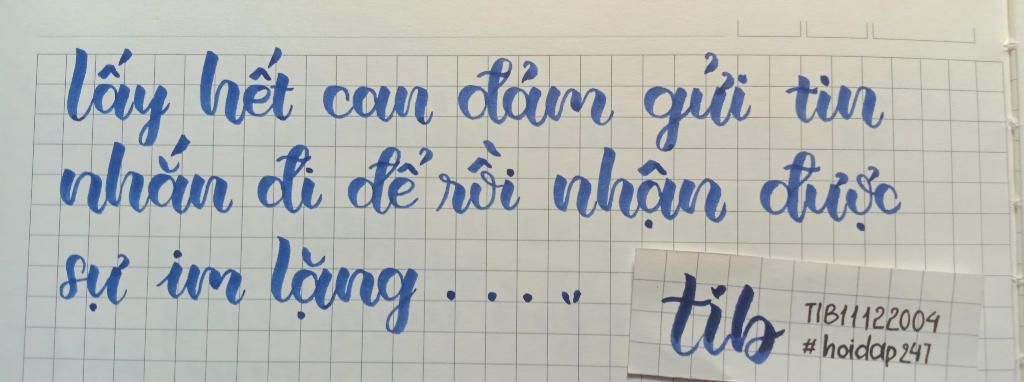 lấy hết can đảm gửi tin
nhắn đi để rồi nhận được
sự im lặng . . . . "
tib
TIB11122004
#hoidap247